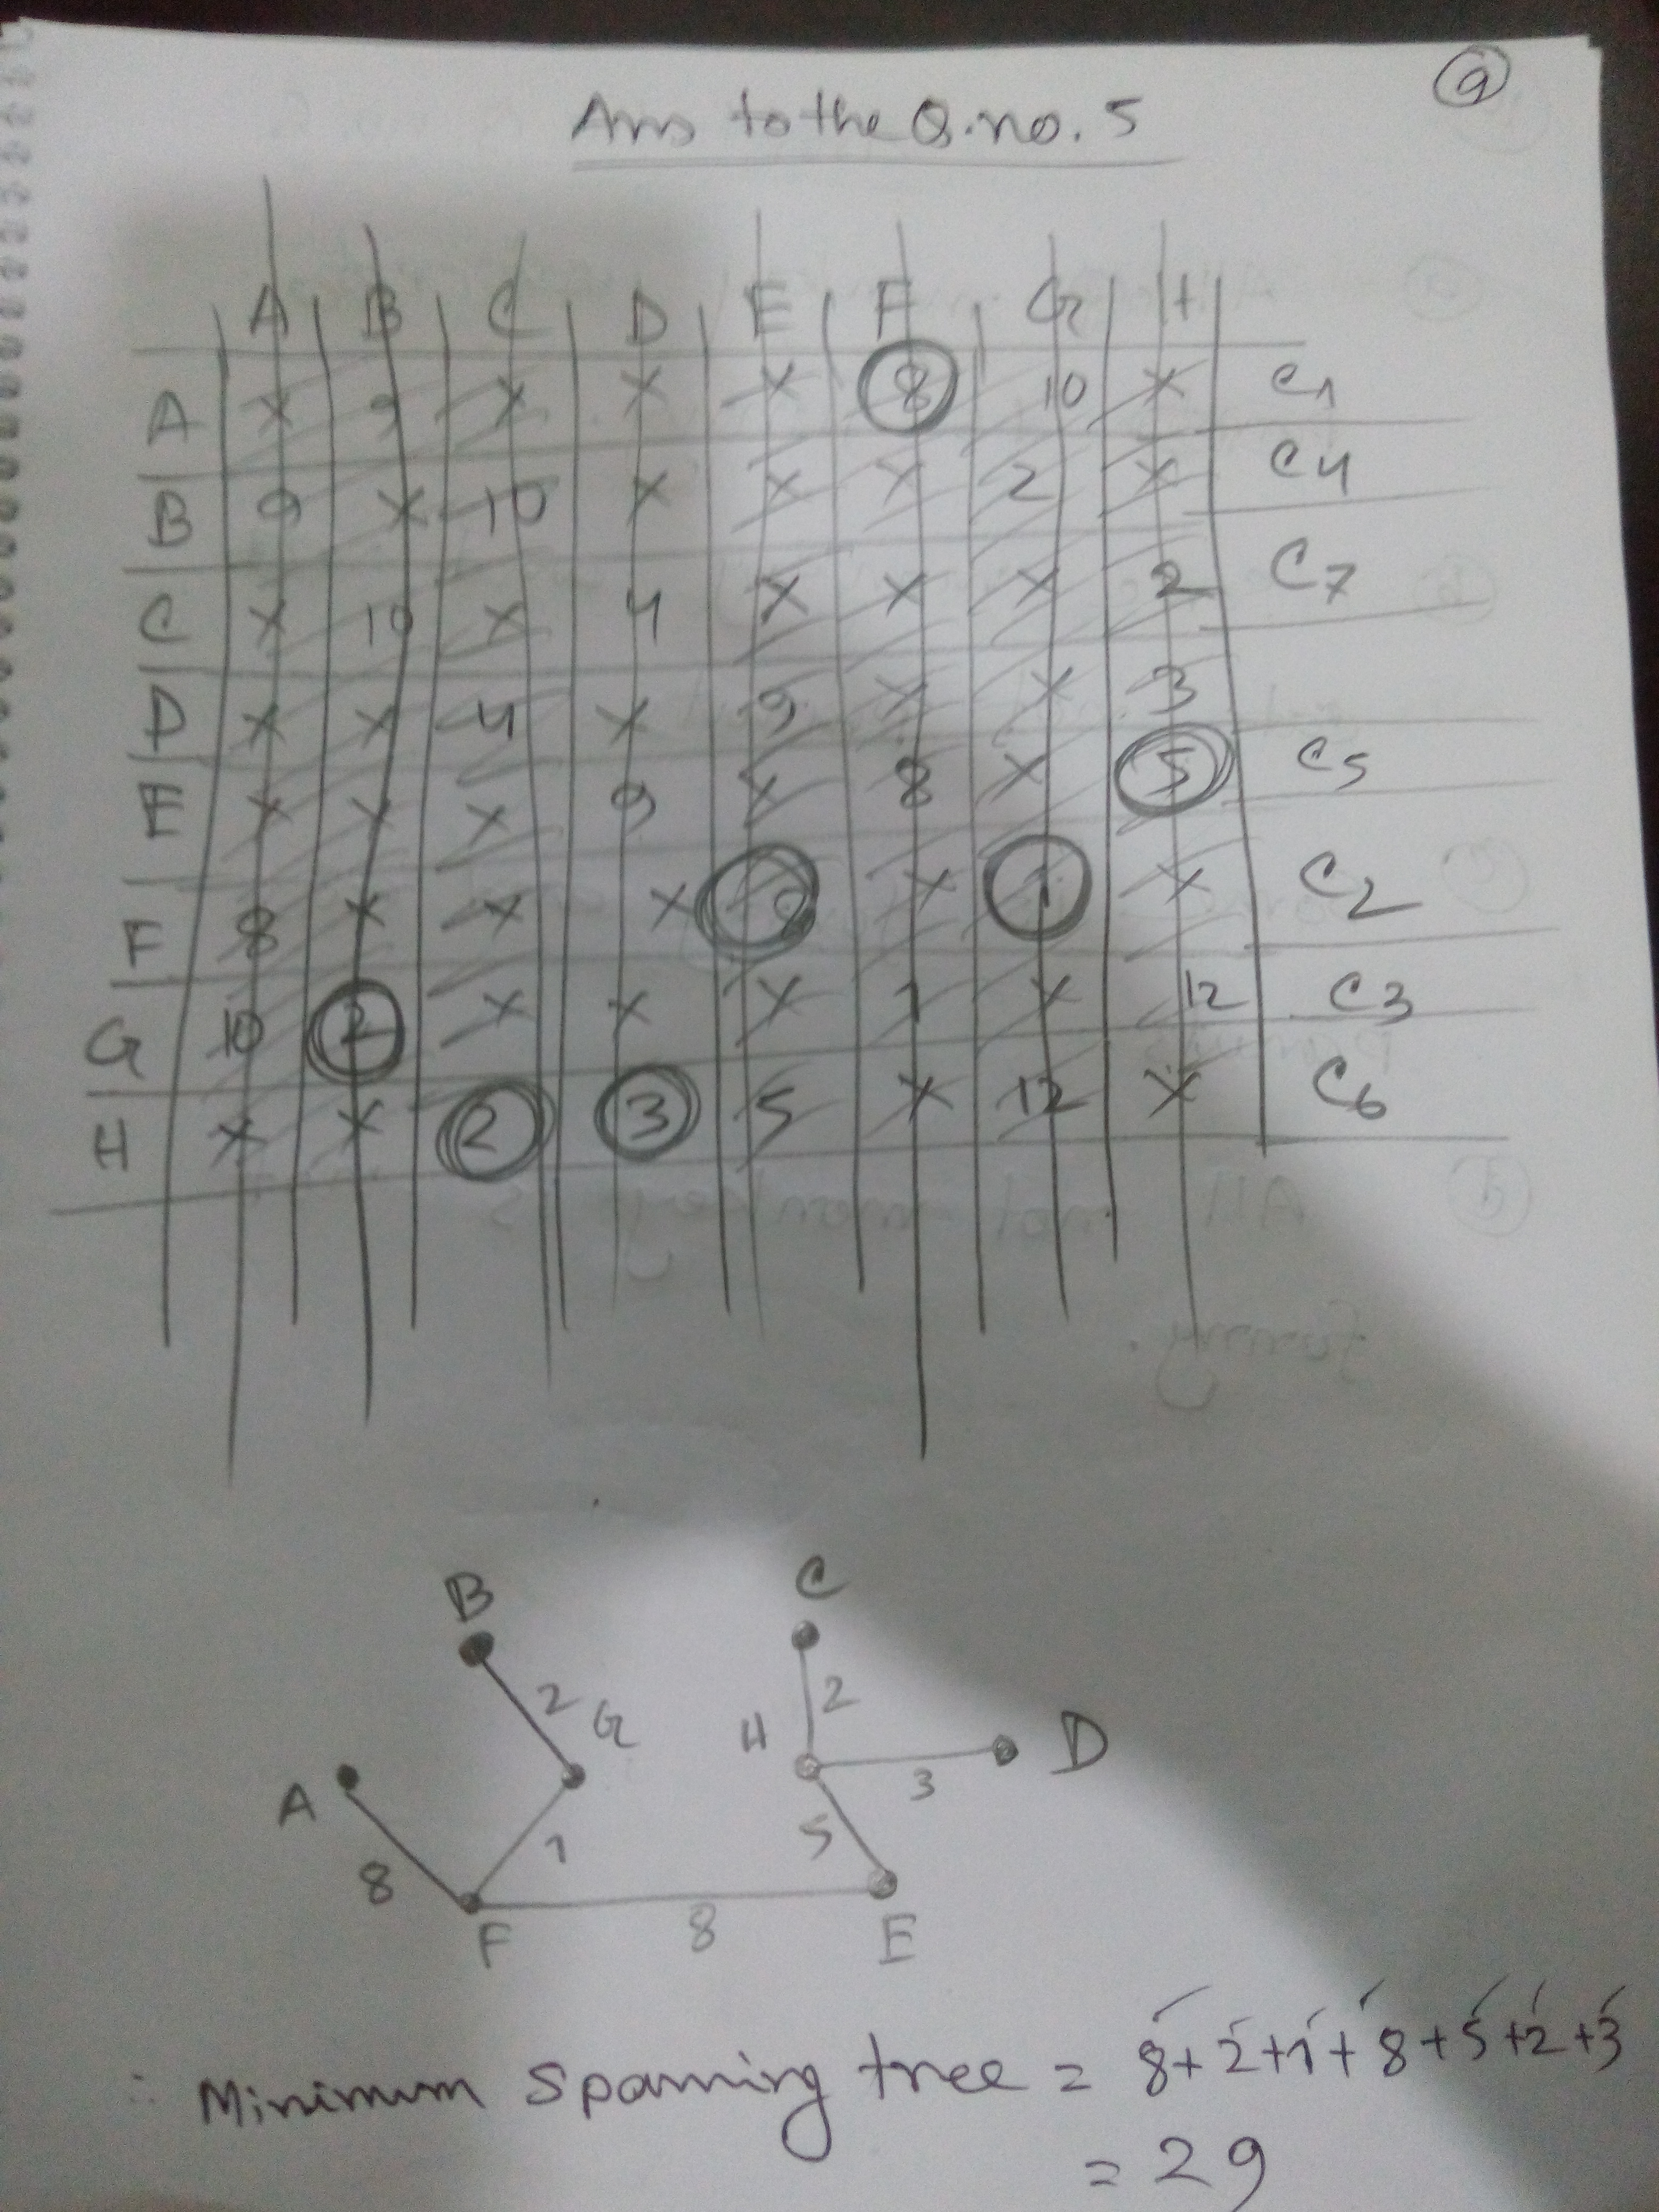 9
Ans to the Q.no. 5
A B C D E F G H
A X 9 X X X 8 10 X C1
B 9 X 10 X X X 2 X C4
C X 10 X 4 X X X 2 C7
D X X 4 X 9 X X 3
E X X X 9 X 8 X 5 C5
F 8 X X X 8 X 1 X C2
G 10 2 X X X 1 X 12 C3
H X X 2 3 5 X 12 X C6
B C
2 G H 2 D
A 3
8 1 5
F 8 E
∴ Minimum spanning tree = 8+2+1+8+5+2+3
= 29